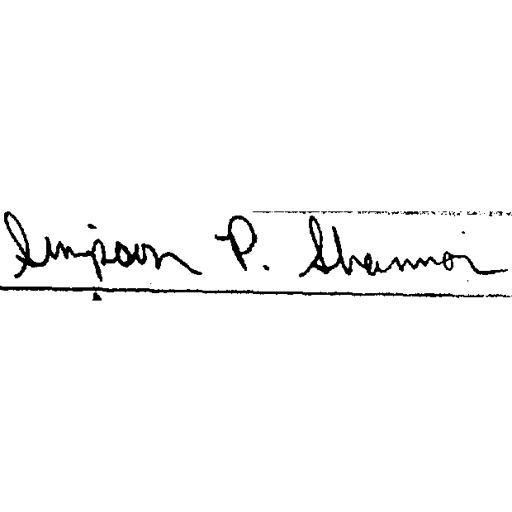 Simpson P. Shannon